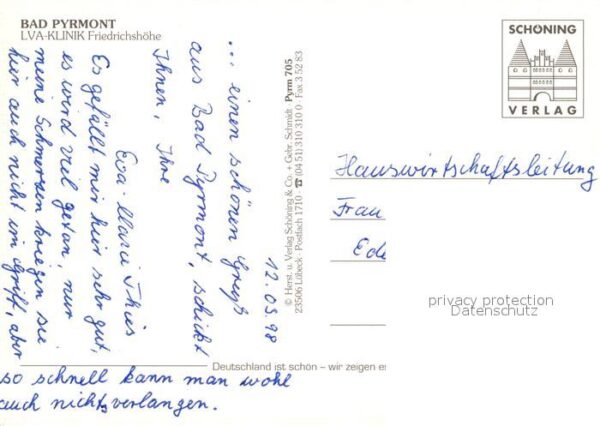 BAD PYRMONT
LVA-KLINIK Friedrichshöhe
12.05.98
... einen schönen Gruß
aus Bad Pyrmont, schickt
Ihnen, Ihre
Eva-Marie
Es gefällt mir hier sehr gut,
es wird viel getan, nur
meine Schmerzen kriegen sie
hier auch nicht im Griff, aber
so schnell kann man wohl
auch nichts verlangen.
© Herst. u. Verlag Schöning & Co. + Gebr. Schmidt · Pyrm 705
23506 Lübeck · Postfach 1710 · ☎ (04 51) 310 310 0 · Fax 3 52 83
SCHÖNING
VERLAG
Hauswirtschaftsleitung
Frau
privacy protection
Datenschutz
Deutschland ist schön – wir zeigen es